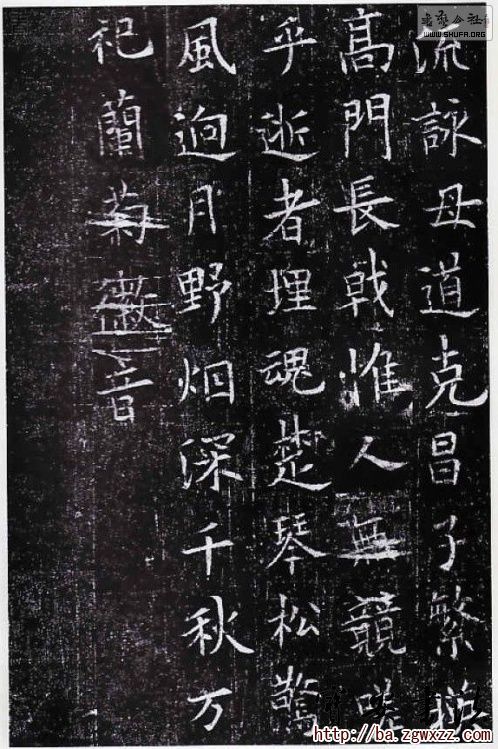 流詠母道克昌子繁
高門長戟惟人無競嗟
乎逝者埋魂楚琴松驚
風逈月野烟深千秋万
祀蘭菊音
WWW.SHUFA.ORG
http://ba.zgwxzz.com